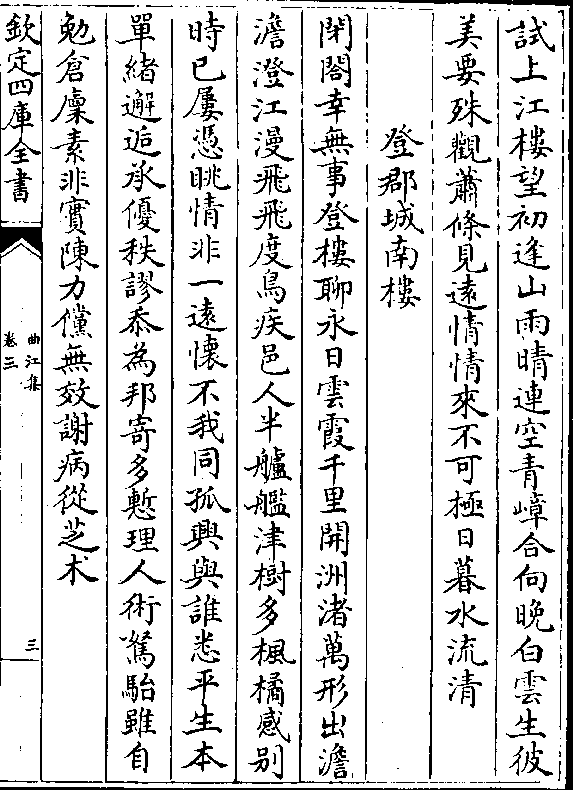 試上江樓望初逢山雨晴連空青嶂合向晚白雲生彼
美要殊觀蕭條見遠情情來不可極日暮水流清
登郡城南樓
閉閤幸無事登樓聊永日雲霞千里開洲渚萬形出澹
澹澄江漫飛飛度鳥疾邑人半艫艦津樹多楓橘感别
時已屢憑眺情非一遠懷不我同孤興與誰悉平生本
單緒邂逅承優秩謬忝為邦寄多慙理人術駑駘雖自
勉倉廩素非實陳力儻無效謝病從芝术
欽定四庫全書
曲江集
卷三
三